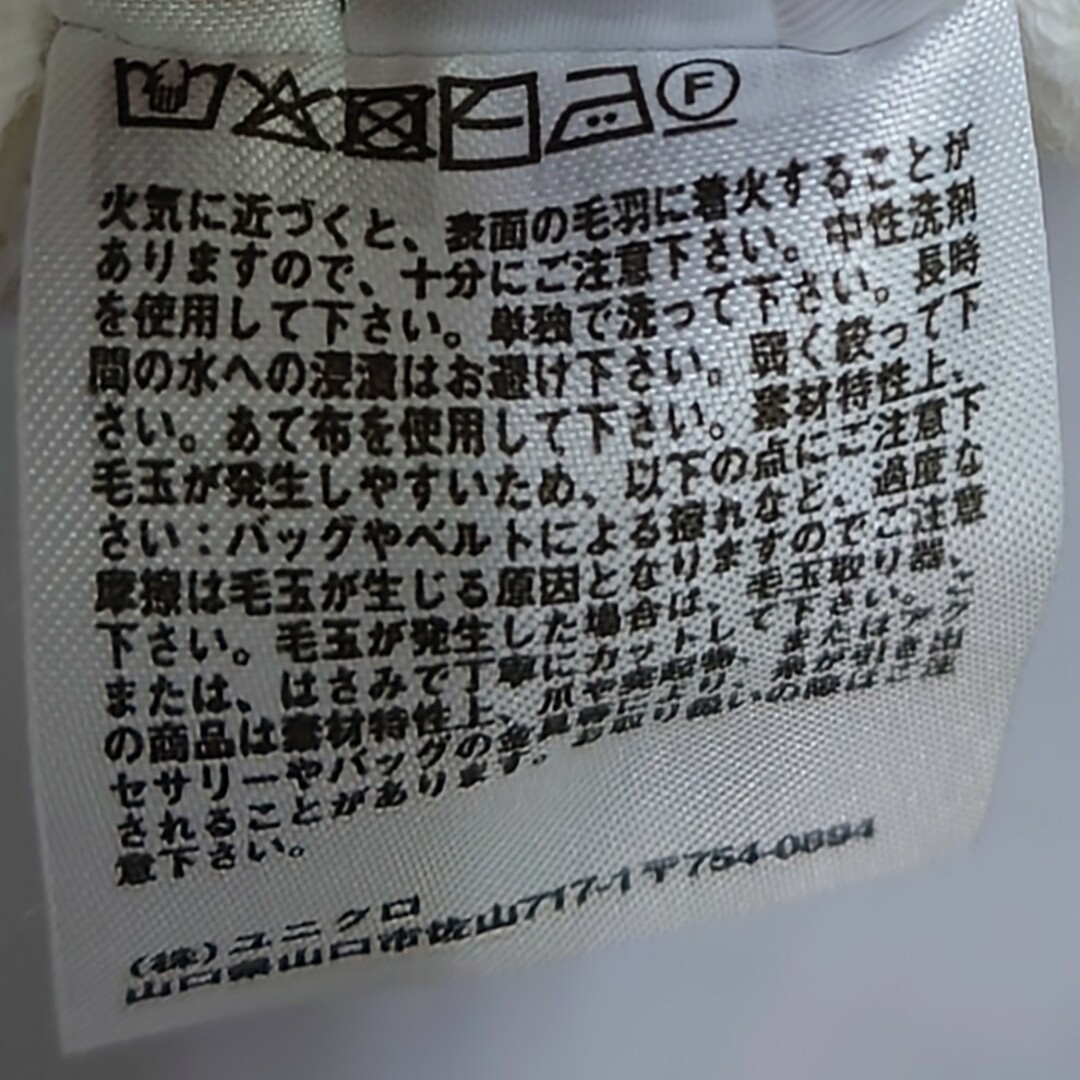 F
火気に近づくと、表面の毛羽に着火することが
ありますので、十分にご注意下さい。中性洗剤
を使用して下さい。単独で洗って下さい。長時
間の水への浸漬はお避け下さい。弱く絞って下
さい。あて布を使用して下さい。素材特性上、
毛玉が発生しやすいため、以下の点にご注意下
さい:バッグやベルトによる擦れなど、過度な
摩擦は毛玉が生じる原因となりますのでご注意
下さい。毛玉が発生した場合は、毛玉取り器、
または、はさみで丁寧にカットして下さい。こ
の商品は素材特性上、爪や突起物、またはアク
セサリーやバッグの金具等により、糸が引き出
されることがあります。お取り扱いの際はご注
意下さい。
(株)ユニクロ
山口県山口市佐山717-1〒754-0894